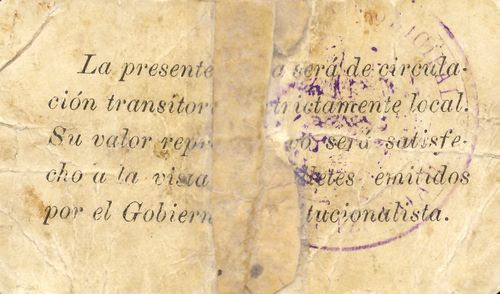 La presente a será de circula-
ción transitor trictamente local.
Su valor repr vo, será satisfe-
cho a la vista lletes emitidos
por el Gobiern tucionalista.